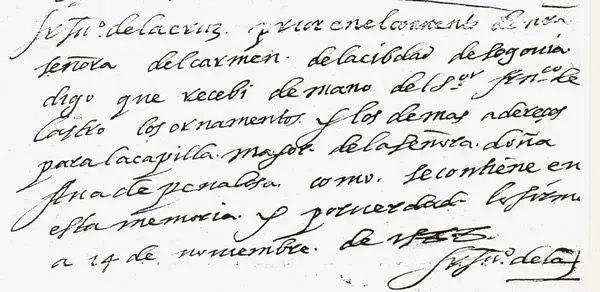 fr Ju.º de la cruz. prior en el convento de nrã
señora del carmen. de la cibdad de segouia
digo que recebi de mano del S.or frn.co de
castro los ornamentos. y los demas adereços
para la capilla. mayor. de la señora. doña
Ana de peñalosa. como. se contiene en
esta memoria. y por uerdad lo firme
a 14 de nouiembre. de
fr. Ju.º de la †